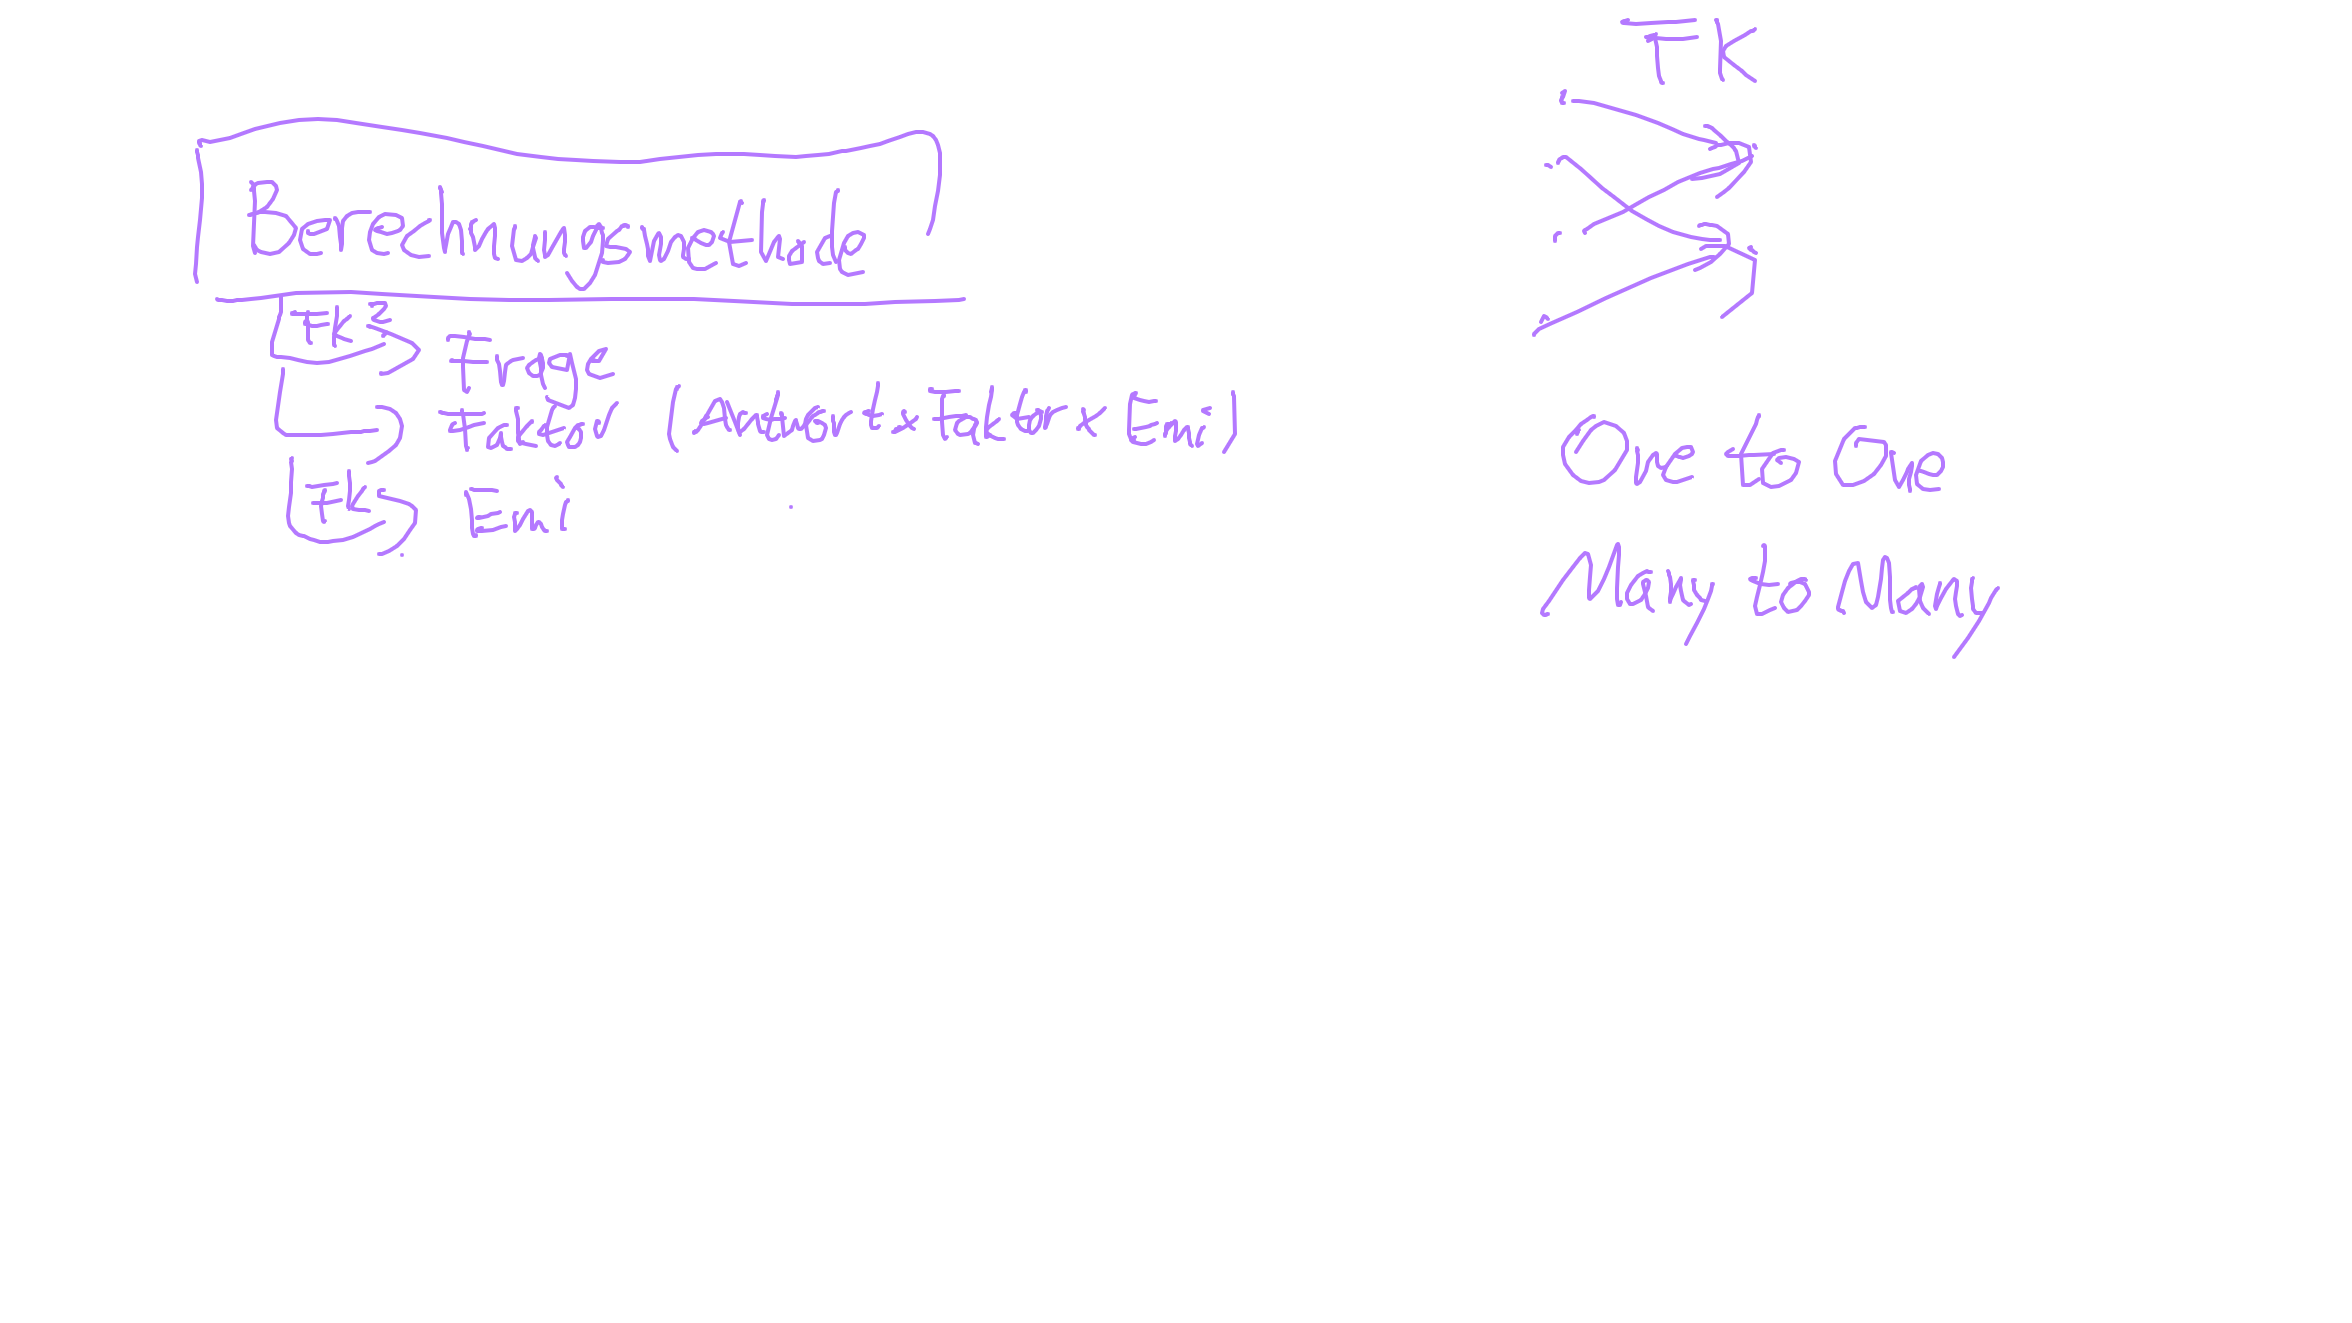 FK
Berechnungsmethode
FK
Frage
Faktor (Antwort x Faktor x Emi)
FK
Emi
One to One
Many to Many